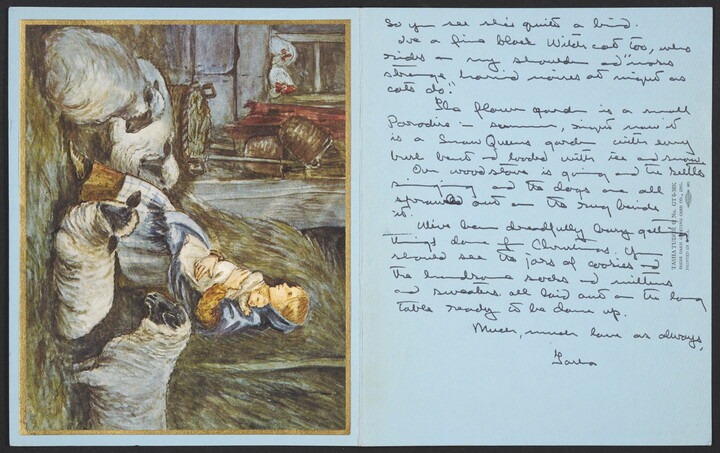 So you see she's quite a bird.
I've a fine black Witch cat too, who
rides on my shoulder and "makes
strange, horrid noises at night as
cats do."
The flower garden is a small
Paradise in summer, right now it
is a Snow Queens garden with every
bush bent and loaded with ice and snow.
Our wood stove is going and the kettle
singing and the dogs are all
sprawled out on the rug beside
it.
I've been dreadfully busy getting
things done for Christmas. You
should see the jars of cookies and
the handsome socks and mittens
and sweaters all laid out on the long
table ready to be done up.
Much, much love as always,
Tasha
TASHA TUDOR
PRINTED IN